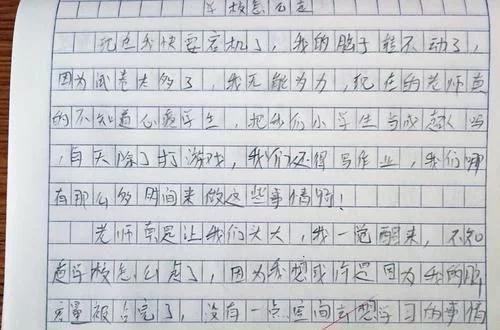 学校怎么走
现在我快要宕机了，我的脑子转不动了，
因为试卷太多了，我无能为力，现在的老师真
的不知道心疼学生，把我们小学生当成超人吗
，每天除了打游戏，我们还得写作业，我们哪
有那么多时间来做这些事情呀！
老师总是让我们头大，我一觉醒来，不知
道学校怎么走了，因为我想或许是因为我的脑
容量被占完了，没有一点空间去想学习的事情